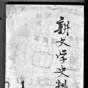 新文学史料
1